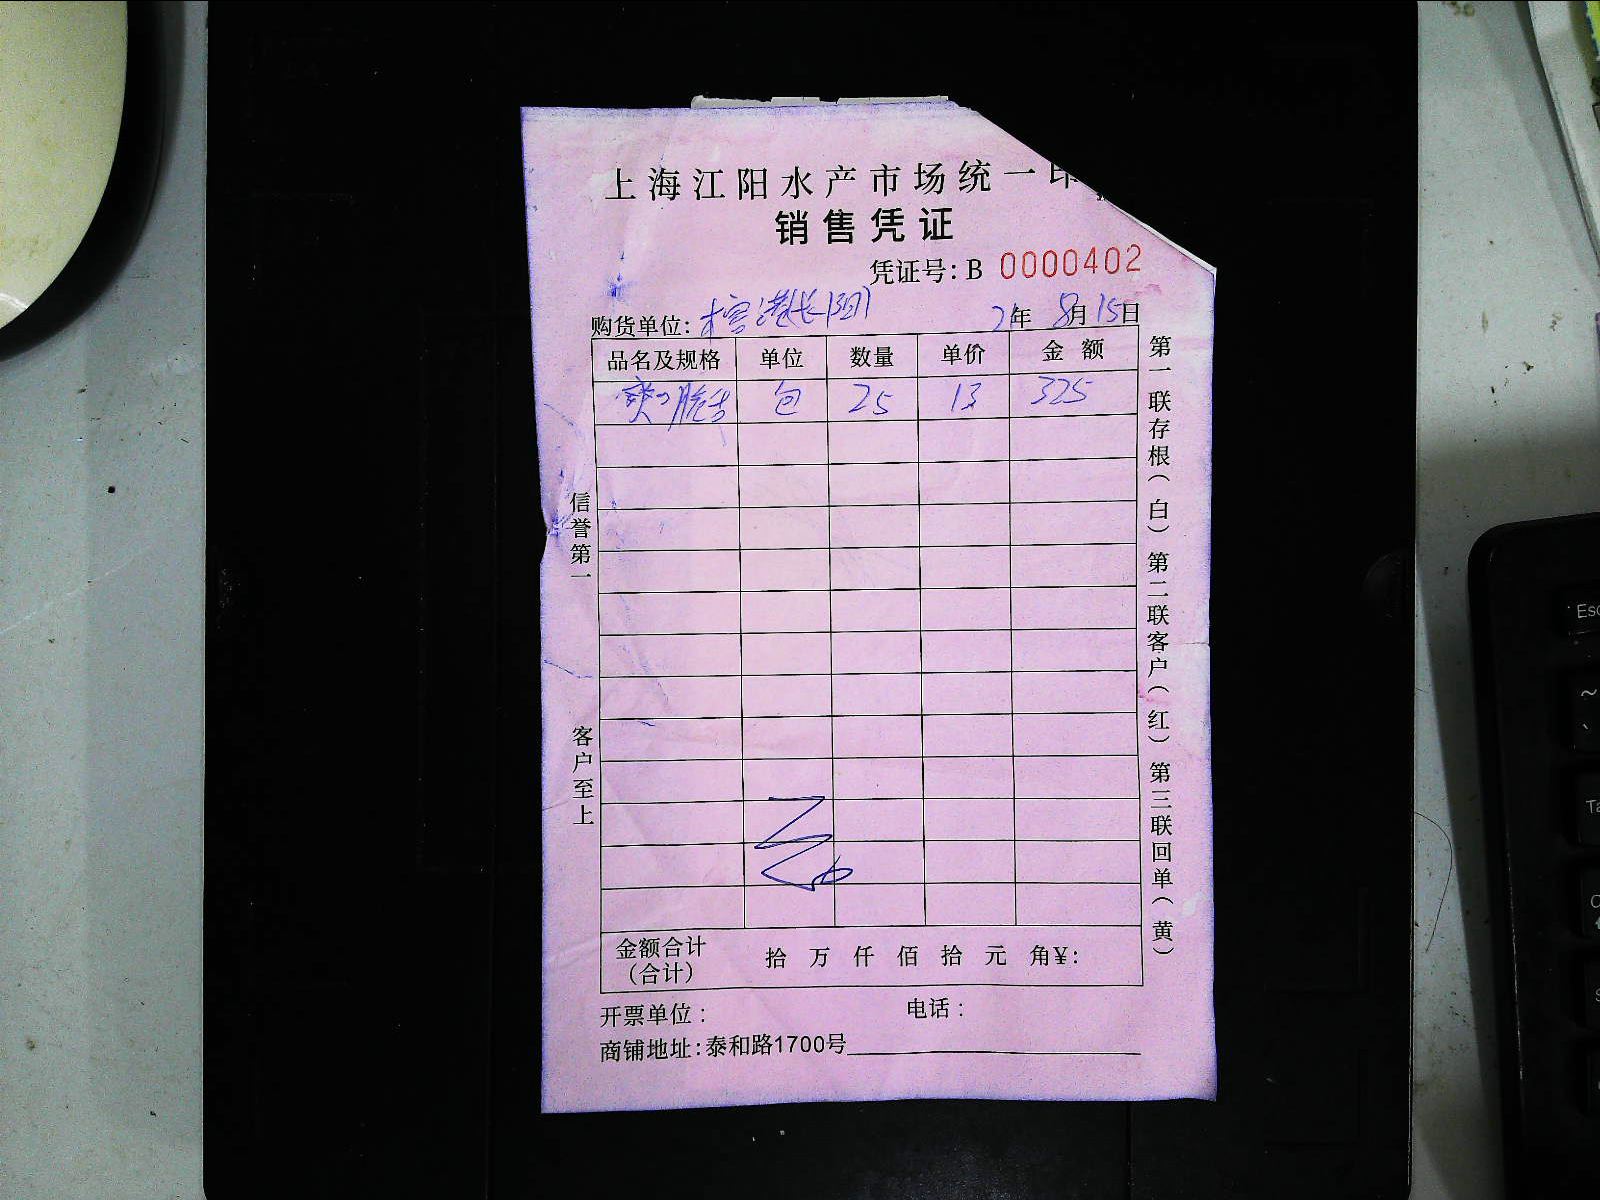 上海江阳水产市场统一印
销售凭证
凭证号: B 0000402
购货单位: 21年 8月15日
品名及规格 单位 数量 单价 金额
包 25 13 325
信誉第一 客户至上
第一联存根(白) 第二联客户(红) 第三联回单(黄)
金额合计 拾 万 仟 佰 拾 元 角¥:
(合计)
开票单位: 电话:
商铺地址:泰和路1700号
Esc
~
、